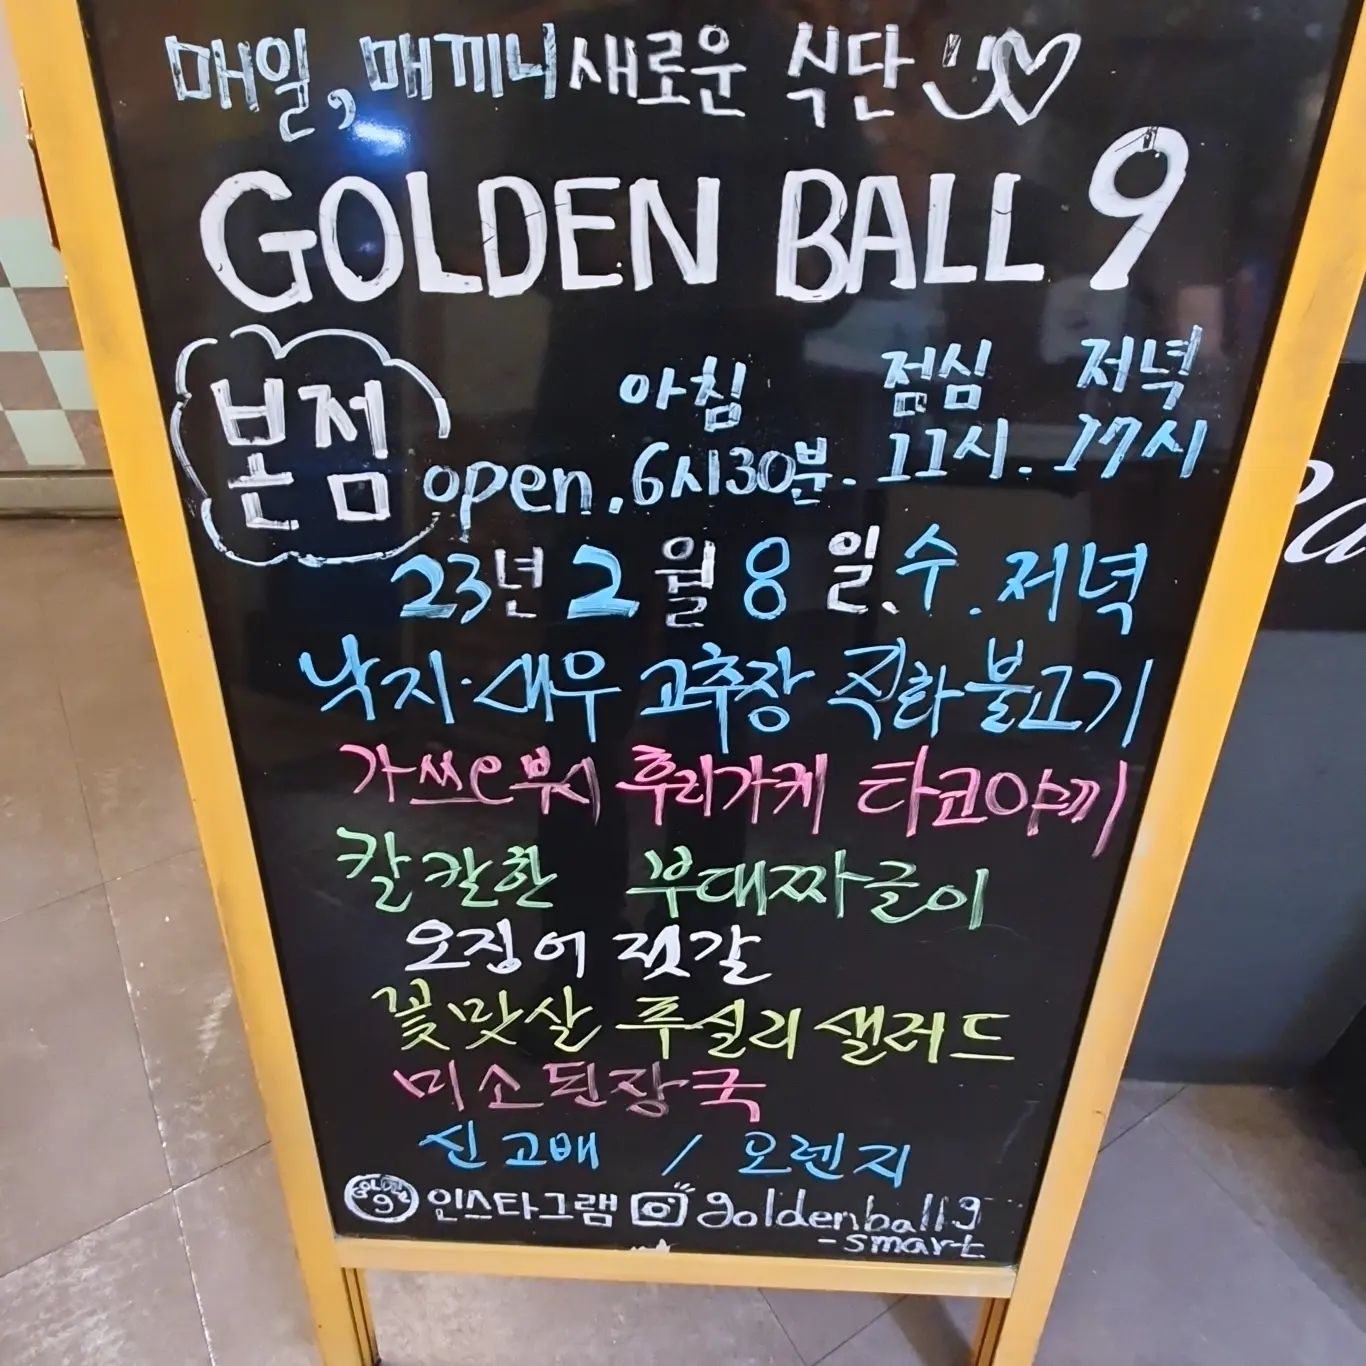 매일, 매끼니 새로운 식단
GOLDEN BALL 9
본점
아침 점심 저녁
open. 6시30분. 11시. 17시
23년 2월 8일. 수. 저녁
낙지·새우 고추장 직화 불고기
가쓰오부시 후리가케 타코야끼
칼칼한 부대짜글이
오징어 젓갈
꽃맛살 푸실리 샐러드
미소된장국
신고배 / 오렌지
GOLDEN 9 인스타그램 goldenball9
-smart